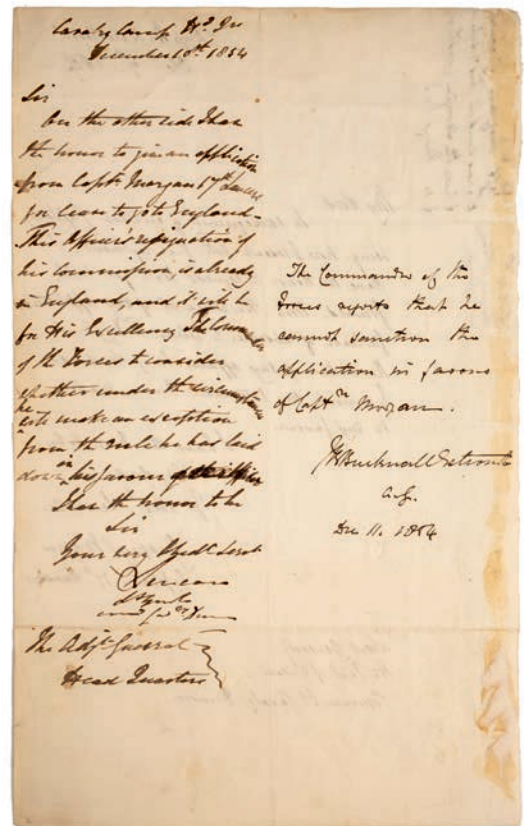 Cavalry Camp Hd Qrs
December 10th 1854
Sir
On the other side I have
the honor to give an application
from Captn Morgan 17th Lancers
for leave to go to England—
This Officer's resignation of
his Commission, is already
in England, and it will be
for His Excellency The Comr
of the Forces to consider
whether under the circumstances
he will make an exception
from the rule he has laid
down in his favour
I have the honor to be
Sir
Your very Obedt Servt
Lucan
Lt Genl
The Adjt General
Head Quarters
The Commander of the
Forces regrets that he
cannot sanction the
application in favour
of Captn Morgan.
J Bucknall Estcourt
A.G.
Dec 11. 1854